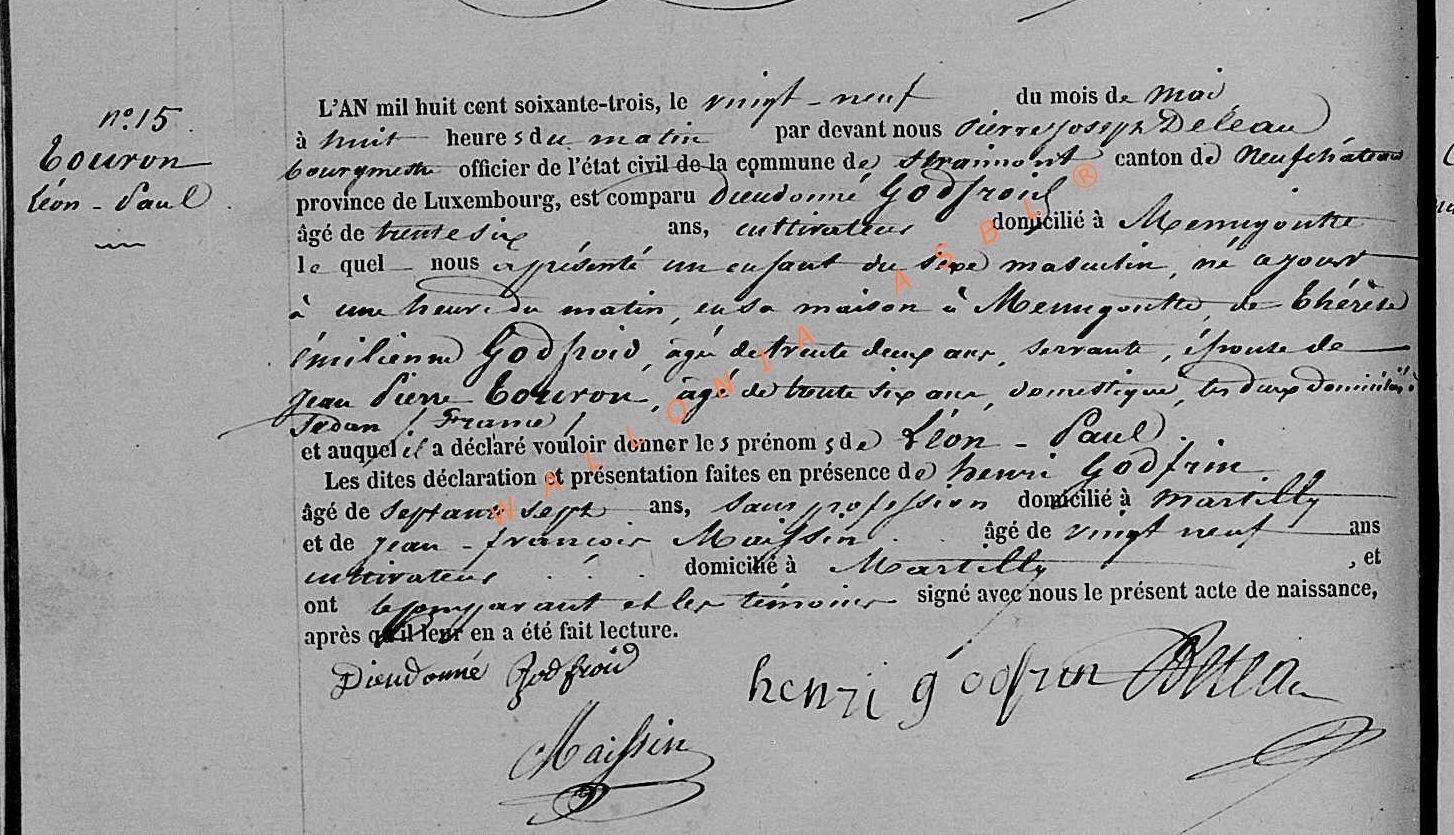 n° 15
Touron
Léon - Paul
L'AN mil huit cent soixante-trois, le vingt - neuf du mois de mai
à huit heures du matin par devant nous Pierre Joseph Deleau
bourgmestre officier de l'état civil de la commune de Straimont canton de Neufchâteau
province de Luxembourg, est comparu Dieudonné Godfroid
âgé de trente six ans, cultivateur domicilié à Menugoutte
lequel nous a présenté un enfant du sexe masculin, né ajourd
à une heure du matin, en sa maison à Menugoutte, de Thérèse
émilienne Godfroid, âgée de trente deux ans, servante, épouse de
Jean Pierre Touron, âgé de trente six ans, domestique, les deux domiciliés à
Sedan / France /
et auquel il a déclaré vouloir donner les prénoms de Léon - Paul.
Les dites déclaration et présentation faites en présence de henri Godfrin
âgé de septante sept ans, sans profession domicilié à Martilly
et de jean - françois Maissin âgé de vingt neuf ans
cultivateur domicilié à Martilly, et
ont le comparant et les témoins signé avec nous le présent acte de naissance,
après qu'il leur en a été fait lecture.
Dieudonné Godfroid henri godfrin Deleau
Maissin
WALLONIA ASBL ®